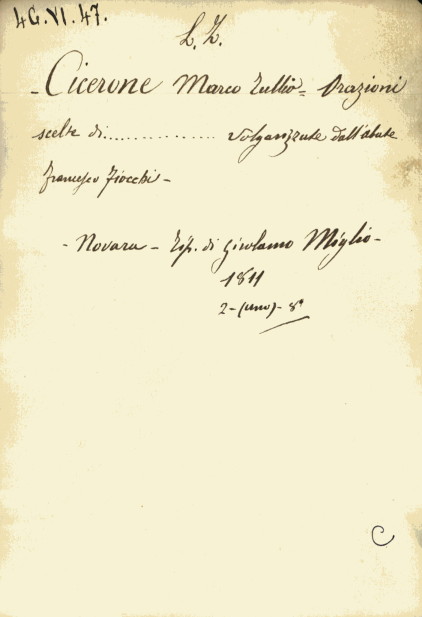 4G.VI.47.
L. Z.
- Cicerone Marco Tullio = Orazioni
scelte di .............. volgarizzate dall'abate
Francesco Fiocchi -
- Novara - Tip. di Girolamo Miglio -
1811
2 - (uno) - 8°
C